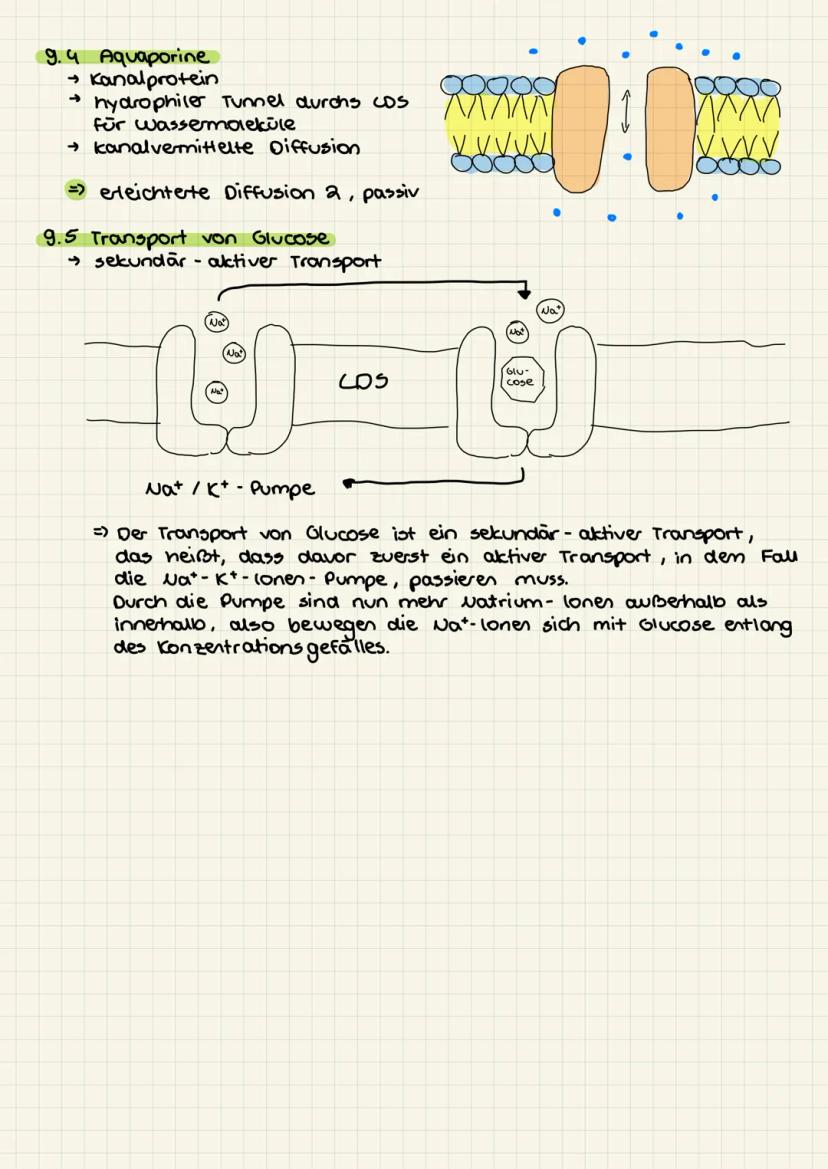 9.4 Aquaporine
→ Kanalprotein
→ hydrophiler Tunnel durchs CDS
für Wassermoleküle
→ kanalvermittelte Diffusion
⇒ erleichterte Diffusion 2, passiv
9.5 Transport von Glucose
→ sekundär-aktiver Transport
Na⁺
Na⁺
Na⁺
Na⁺
Na⁺
Glu-
cose
CDS
Na⁺ / K⁺ - Pumpe
⇒ Der Transport von Glucose ist ein sekundär-aktiver Transport,
das heißt, dass davor zuerst ein aktiver Transport, in dem Fall
die Na⁺-K⁺-Ionen-Pumpe, passieren muss.
Durch die Pumpe sind nun mehr Natrium-Ionen außerhalb als
innerhalb, also bewegen die Na⁺-Ionen sich mit Glucose entlang
des Konzentrationsgefälles.